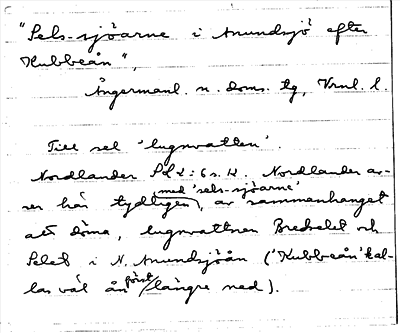 "Sels-sjöarne i Anundsjö efter
Kubbeån",
Ångermanl. n. doms. tg, Vrnl. l.
Till sel 'lugnvatten'.
Nordlander 6 s. 12. Nordlander av-
ser här tydligen, med 'sels-sjöarne' av sammanhanget
att döma, lugnvattnen Bredselet och
Selet i N. Anundsjöån ('Kubbeån' kal-
las väl ån först längre ned).